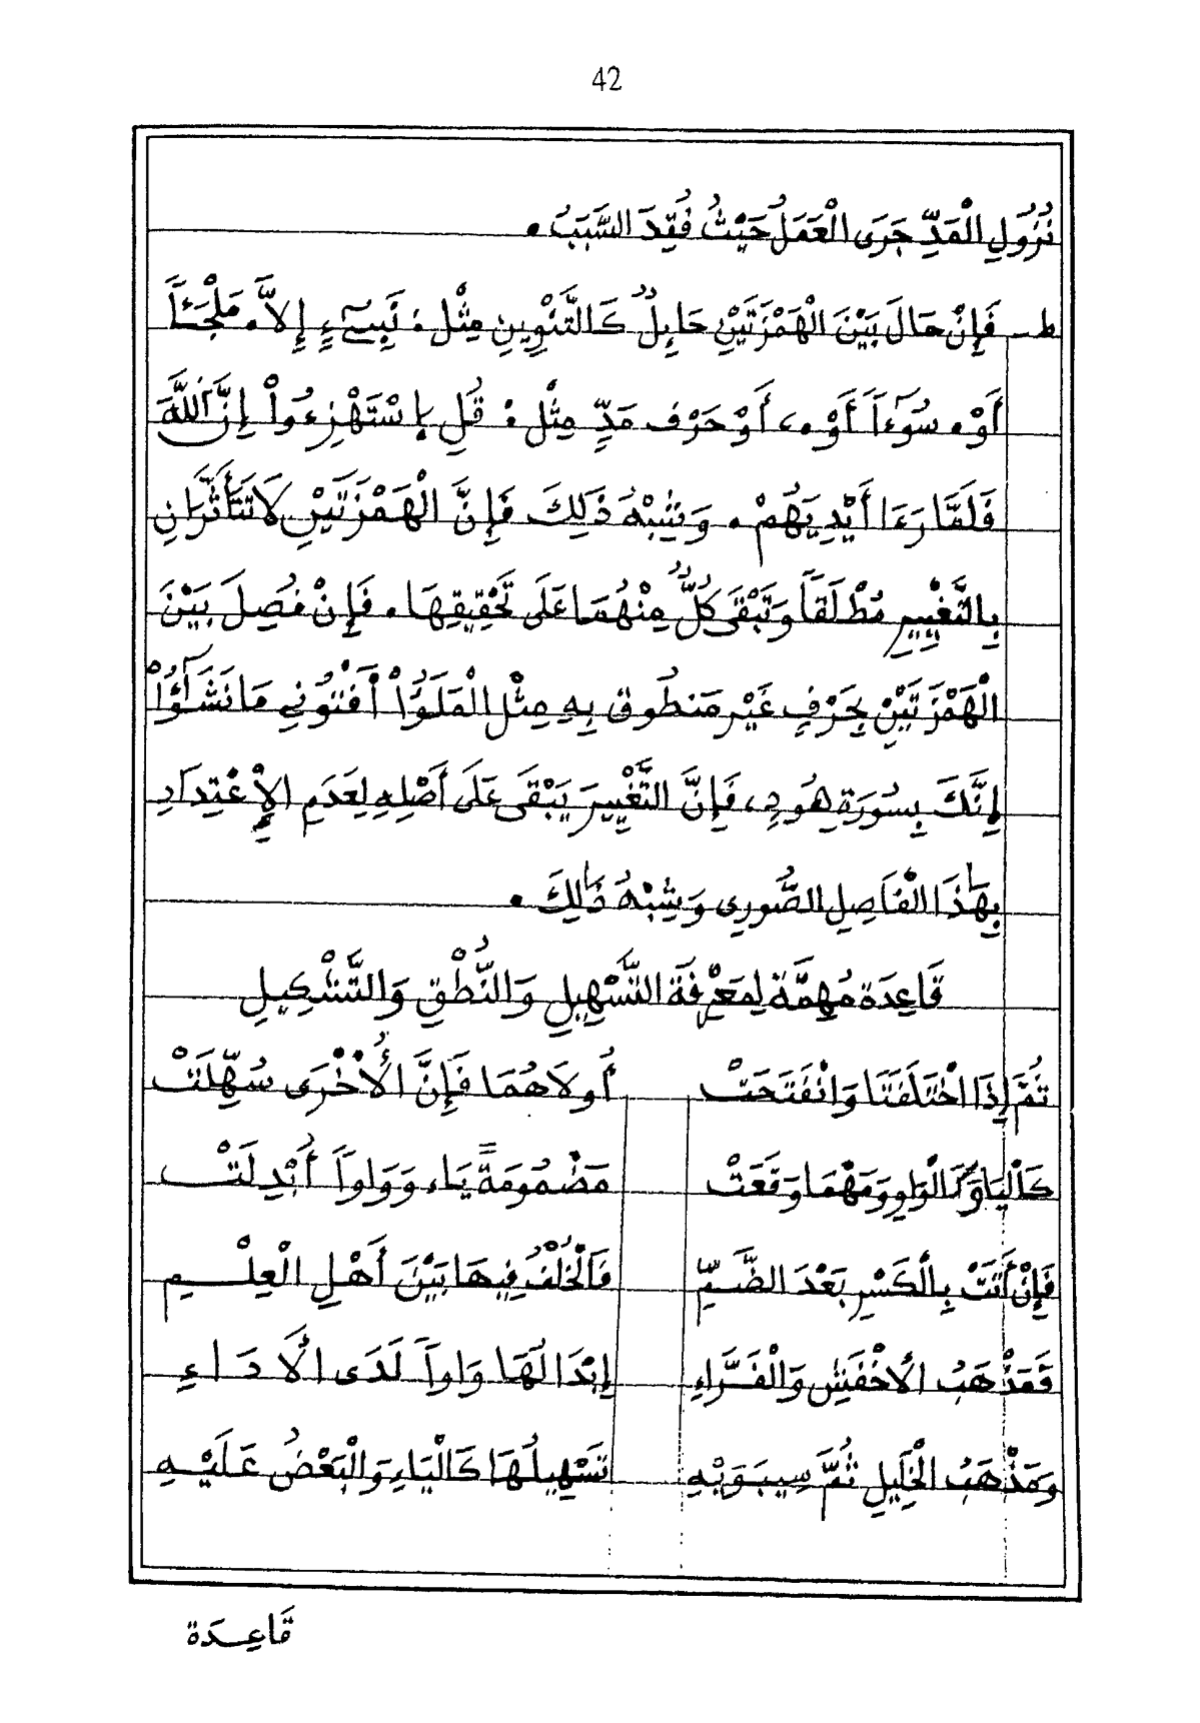 42
نُزُولِ الْمَدِّ جَرَى الْعَمَلُ حَيْثُ فُقِدَ السَّبَبُ .
ط - فَإِنْ حَالَ بَيْنَ الْهَمْزَتَيْنِ حَابِلٌ كَالتَّنْوِينِ مِثْل : نَبِيٓءٍ إِلاَّ . مَلْجَـًٔا
أَوْ . سُوٓءاً أَوْ . ، أَوْ حَرْف مَدٍّ مِثْل : قُلِ اِسْتَهْزِءُواْ إِنَّ اَللَّهَ
فَلَمَّا رَءَا أَيْدِيَهُمْ . وَشِبْهُ ذَلِكَ فَإِنَّ الْهَمْزَتَيْنِ لاَ تَتَأَثَّرَانِ
بِالتَّغْيِيرِ مُطْلَقاً وَتَبْقَى كُلٌّ مِنْهُمَا عَلَى تَحْقِيقِهَا . فَإِنْ فُصِلَ بَيْنَ
الْهَمْزَتَيْنِ بِحَرْفٍ غَيْر مَنطُوق بِهِ مِثْل الْمَلَؤُاْ أَفْتُونِي مَا نَشَٰٓؤُاْ
إِنَّكَ بِسُورَةِ هُودٍ ، فَإِنَّ التَّغْيِيرَ يَبْقَى عَلَى أَصْلِهِ لِعَدَمِ الاِعْتِدَادِ
بِهَٰذَا الْفَاصِلِ الصُّورِى وَشِبْهُ ذَٰلِكَ .
قَاعِدَة مُهِمَّة لِمَعْرِفَة التَّسْهِيلِ وَالنُّطْقِ وَالتَّشْكِيلِ
ثُمَّ إِذَا اخْتَلَفَتَا وَانْفَتَحَتْ أُولاَهُمَا فَإِنَّ الأُخْرَى سُهِّلَتْ
كَالْيَا وَكَالْوَاوِ وَمَهْمَا وَقَعَتْ مَضْمُومَةً يَاء وَوَاواً أُبْدِلَتْ
فَإِنْ أَتَتْ بِالْكَسْرِ بَعْدَ الضَّمِّ فَالْخُلْفُ فِيهَا بَيْنَ أَهْلِ الْعِلْمِ
فَمَذْهَبُ الأَخْفَشِ وَالْفَرَّاءِ إِبْدَالُهَا وَاواً لَدَى الأَدَاءِ
وَمَذْهَبُ الْخَلِيلِ ثُمَّ سِيبَوَيْهِ تَسْهِيلُهَا كَالْيَاءِ وَالْبَعْضُ عَلَيْهِ
قَاعِدَة